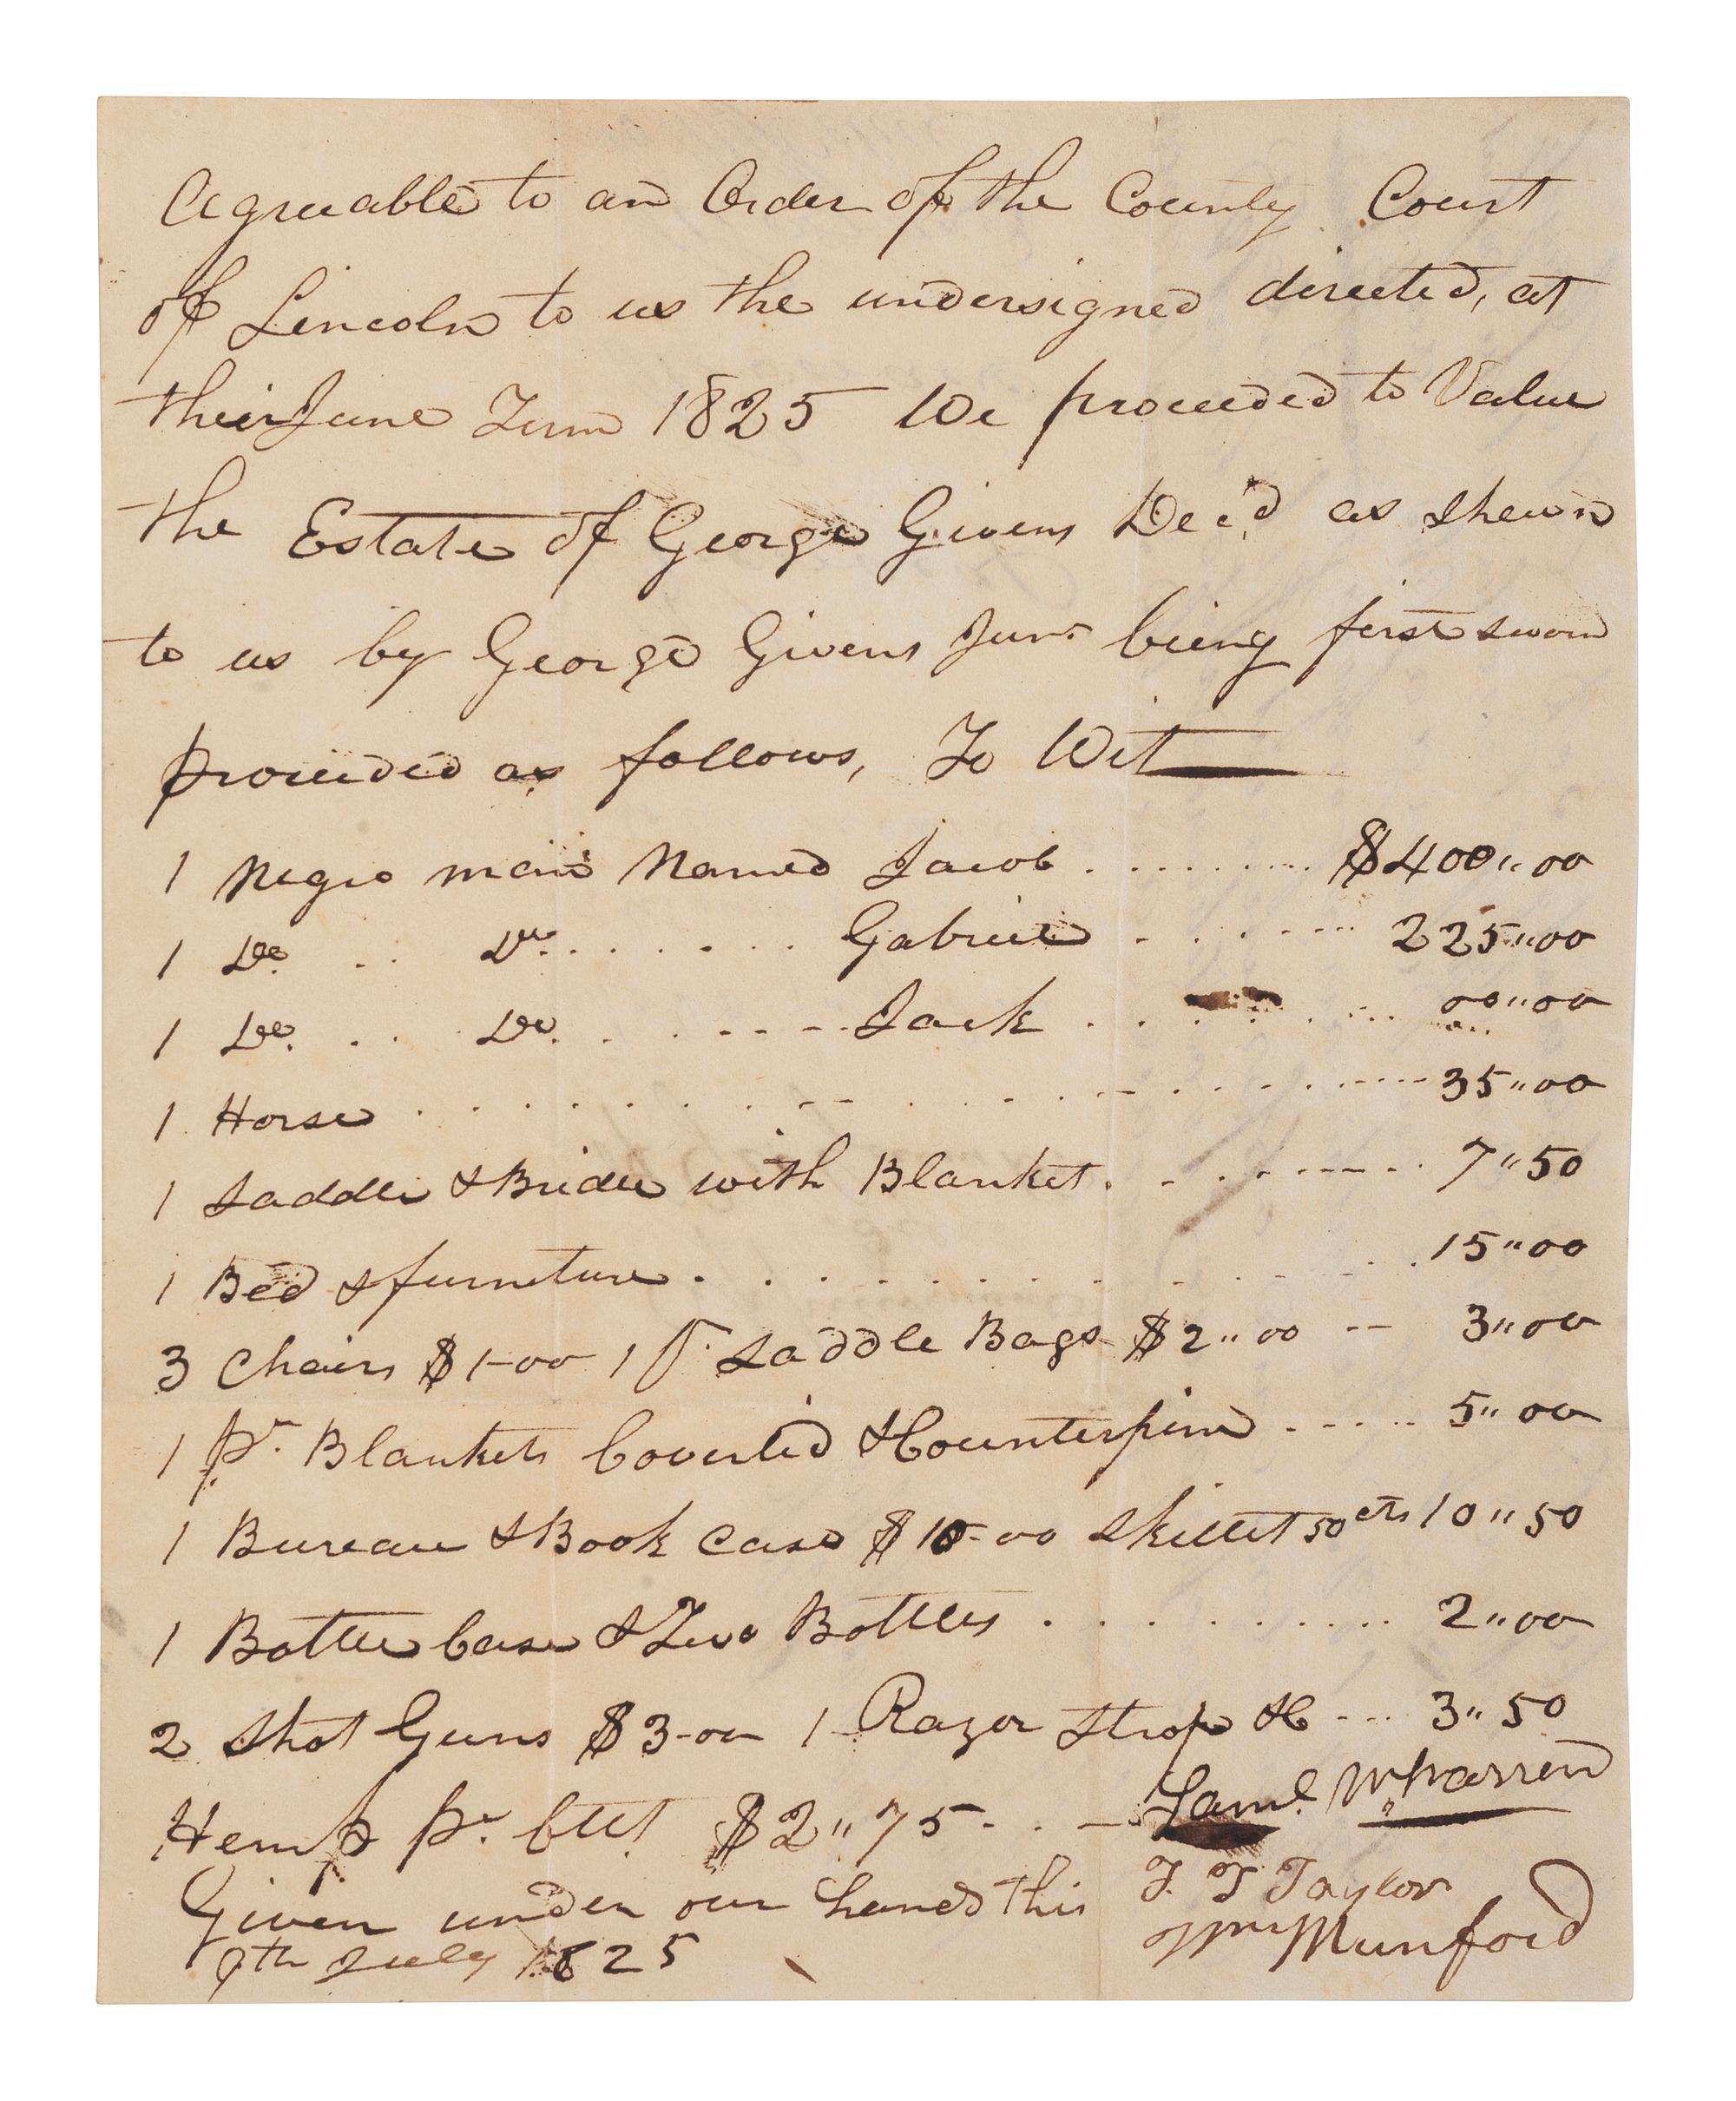 Agreeable to an Order of the County Court
of Lincoln to us the undersigned directed, at
their June Term 1825 We proceeded to Value
the Estate of George Givens Dec,d as shewn
to us by George Givens Junr being first sworn
proceeded as follows, To Wit
1 Negro man Named Jacob . . . . . . . . $400"00
1 Do. . . Do. . . . . . . . Gabriel . . . . . . . 225"00
1 Do. . . . Do. . . - - - Jack . . . . . . . 00"00
1 Horse . . . . . . . . . . . . . . . . 35"00
1 Saddle & Bridle with Blanket . . . . . - - - . . 7"50
1 Bed & furniture . . . . . . . . . . . . . . 15"00
3 Chairs $1-00 1 pr Saddle Bags $2"00 -- 3"00
1 pr. Blankets Coverled & Counterpine . - - . . 5"00
1 Bureau & Book Case $10-00 Skillet 50 cts 10"50
1 Bottle Case & Two Bottles . . . . . . . . . . 2"00
2 Shot Guns $3-00 1 Razor Strop &C - - . . 3"50
Hemp pr. $2"75 - . . - Saml. W Warren
Given under our hands this T. T Taylor
9th July 1825 Wm Munford